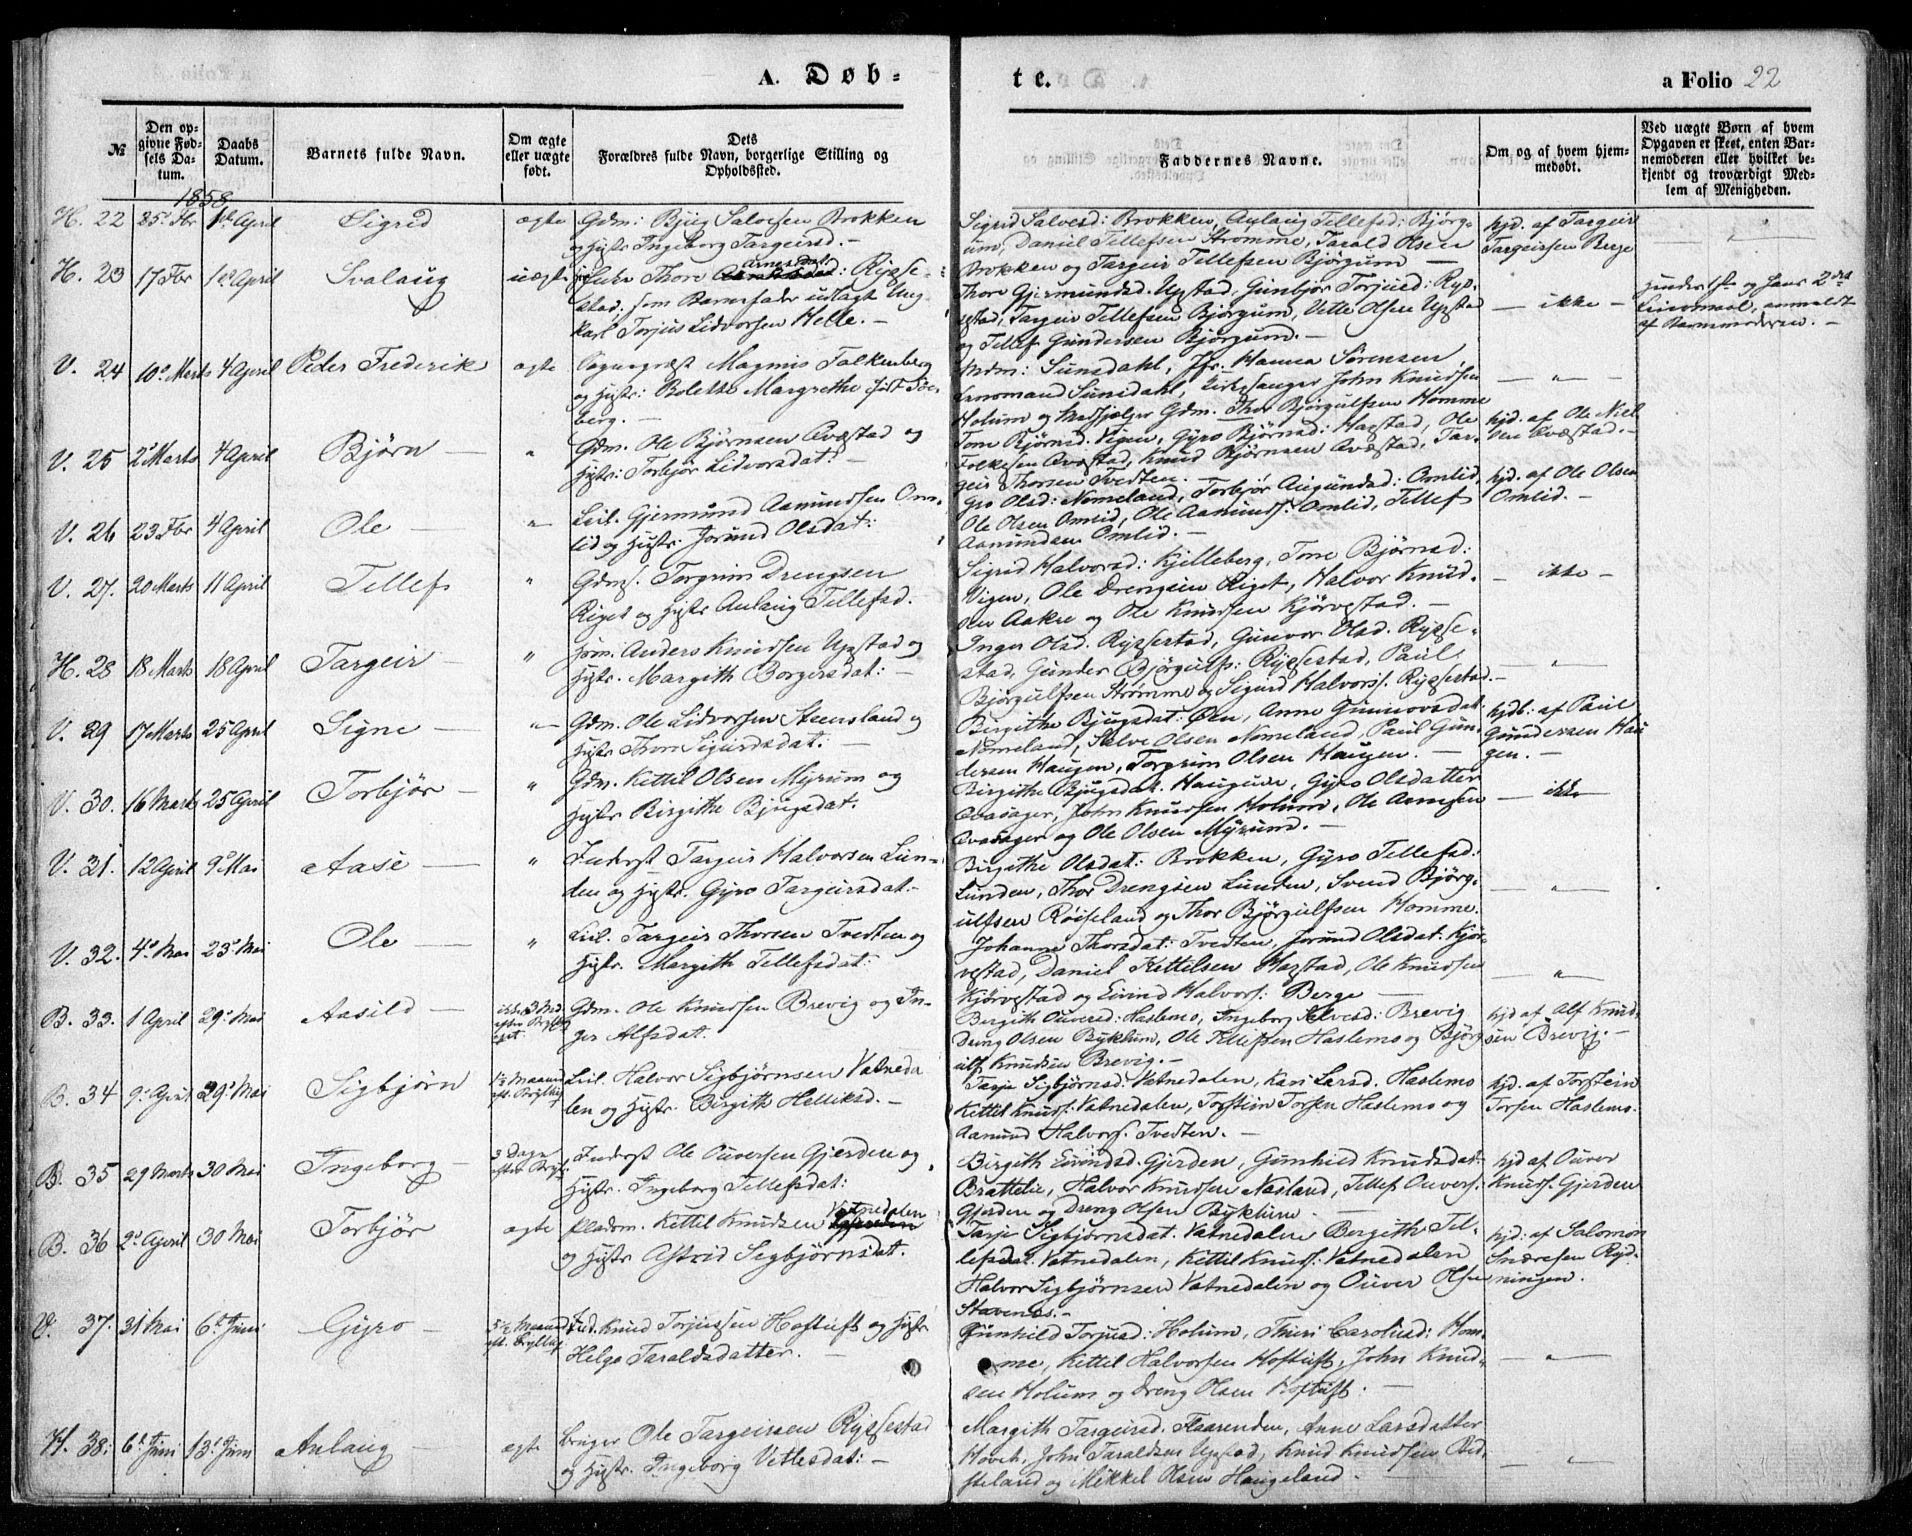 A. Døb=
te.
a Folio 22
№
Den op-
givne Fød-
sels Da-
tum.
Daabs
Datum.
Barnets fulde Navn.
Om ægte
eller uægte
født.
Dets
Forældres fulde Navn, borgerlige Stilling og
Opholdssted.
Faddernes Navne.
Om og af hvem hjem-
medøbt.
Ved uægte Børn af hvem
Opgaven er skeet, enten Bar-
nemoderen eller hvilket be-
kjendt og troværdigt Med-
lem af Menigheden.
1858
H. 22 25 Fbr 1 April Sigrid ægte Gdm: Bjug Salvesen Brokken
og Hustr Ingeborg Targeirsd. -
Sigrid Salvesd: Brokken, Aulaug Tellefsd: Bjørg-
um, Daniel Tellefsen Strømme, Tarald Olsen
Brokken og Targeir Tellefsen Bjørgum -
hjd. af Targeir
Targeirsen Berge
H. 23 17 Fbr 1 April Svalaug uægte Thore Arnesdat: Rysse-
stad, som Barnefader udlagt Ung-
karl Torjus Lidvorsen Helle. -
Thore Gjermundsd. Upstad, Gunbjør Torjusd: Rys-
sestad, Targeir Tellefsen Bjørgum, Vetle Olsen Upstad
og Tellef Gundersen Bjørgum. -
- ikke -
hendes 1ste og hans 2det
Leiermaal, anmeldt
af Barnemoderen. -
V. 24 10 Marts 4 April Peder Frederik ægte Sognepræst Magnus Falkenberg
og Hustr: Bolette Margrethe født
berg. -
Mdm: Sunsdahl, Jfr. Hanna Sørensen,
Lensmand Sunsdahl, Kirkesanger John Knudsen
Holum og Medhjælper Gdm. Thor Bjørgulfsen Homme
- " -
V. 25 2 Marts 4 April Bjørn - " Gdm. Ole Bjørnsen Qvæstad og
Hustr: Torbjør Lidvorsdat: -
Tone Bjørnsd. Vigen, Gyro Bjørnsd: Hagstad, Ole
Folkesen Qvæstad, Knud Bjørnsen Qvæstad, Tar-
geir Thorsen Tvedten. -
hjd. af Ole Niel-
sen Qvæstad. -
V. 26 23 Fbr 4 April Ole - " Leil. Gjermund Aamundsen Om-
lid og Hustr. Jorund Olsdat:
Gro Olsd: Nomeland, Torbjør Aamundsd: Omlid,
Ole Olsen Omlid, Ole Aamunds: Omlid, Tellef
Aamundsen Omlid. -
hjd. af Ole Olsen
Omlid. -
V. 27. 20 Marts 11 April Tellef " Gdm. Torgrim Drengsen
Riget og Hustr Aulaug Tellefsd.
Sigrid Halvorsd: Kjelleberg, Tone Bjørnsd:
Vigen, Ole Drengsen Riget, Halvor Knud-
sen Aakre og Ole Knudsen Kjørvestad. -
- ikke -
H. 28 18 Marts 18 April Targeir - " Anders Knudsen Upstad og
Hustr. Margith Borgersdat: -
Inger Olsd. Ryssestad, Gunvor Olsd. Rysse-
stad, Gunder Bjørgulfs: Ryssestad, Paul
Bjørgulfsen Strømme og Sigurd Halvors. Ryssestad. -
- " -
V. 29 17 Marts 25 April Signe - " Gdm. Ole Lidvorsen Steensland og
Hustr Thone Sigurdsdat. -
Birgithe Bjugsdat: Øen, Anne Gunnovsdat
Nomeland, Salve Olsen Nomeland, Paul Gun-
dersen Haugen, Torgrim Olsen Haugen. -
hjdb. af Paul
Gundersen Hau-
gen. -
V. 30. 16 Marts 25 April Torbjør - " Gdm. Kettil Olsen Myrum og
Hustr Birgithe Bjugsdat.
Birgithe Bjugsdat. Haugene, Gyro Olsdatter
Qvasager, John Knudsen Holum, Ole Arnesen
Qvasager og Ole Olsen Myrum. -
- ikke
V. 31. 12 April 9 Mai Aase - " Inderst Targeir Halvorsen Lun-
den og Hustr. Gyro Targeirsdat: -
Birgithe Olsdat: Brokken, Gyro Tellefsd:
Lunden, Thor Drengsen Lunden, Svend Bjørg-
ulfsen Røiseland og Thor Bjørgulfsen Homme.
- " -
V. 32. 4 Mai 23 Mai Ole - " Leil. Targeir Thorsen Tvedten og
Hustr. Margith Tellefsdat:
Johanne Thorsdat: Tvedten, Jorund Olsdat: Kjør-
vestad, Daniel Kettilsen Hagstad, Ole Knudsen
Kjørvestad og Eivind Halvors: Berge -
- " -
B. 33. 1 April 29 Mai Aasild - Gdm. Ole Knudsen Brevig og In-
ger Alfsdat:
Bergith Ouversd: Haslemo, Ingeborg Salvesd: Brevig
Dreng Olsen Byklum, Ole Tellefsen Haslemo og Bjørg-
ulf Knudsen Brevig. -
hjd af Alf Knud-
sen Brevig. -
B. 34 9 April 29 Mai Sigbjørn 1½ Maaned
eft. Bryllup Leil. Halvor Sigbjørnsen Vatneda-
len og Hustr. Birgith Helliksd. -
Tarje Sigbjørnsd. Vatnedalen, Kari Larsd. Haslemo
Kettil Knuds: Vatnedalen, Torstein Torsen Haslemo og
Aamund Halvors. Tvedten. -
hjd. af Torstein
Torsen Haslemo.
B. 35 29 Marts 30 Mai Ingeborg - 3 Dage
efter Bryl: Inderst Ole Ouversen Gjerden og
Hustr. Ingeborg Tellefsdat:
Birgith Eivindsd. Gjerden, Gunhild Knudsdat:
Bratteli, Halvor Knudsen Næsland, Tellef Ouvers.
Gjerden og Dreng Olsen Byklum. -
hjd af Ouver
Knuds. Gjerden
B. 36 2 April 30 Mai Torbjør ægte Pladsm. Kettil Knudsen Vatnedalen
og Hustr. Astrid Sigbjørnsdat.
Tarje Sigbjørnsdat. Vatnedalen Bergith Tel-
lefsdat. Vatnedalen, Kettil Knuds: Vatnedalen
Halvor Sigbjørnsen Vatnedalen og Ouver Olsen
Stavenes. -
hjd: af Salomon
Snæresen Ryd-
ningen.
V. 37. 31 Mai 6 Juni Gyro - 5½ Maaned
eft. Bryllup Ind. Knud Torjussen Hoftuft og Hustr
Helge Taraldsdatter. -
Gunhild Torjusd: Holum, Thuri Carolusd: Hom-
me, Kettil Halvorsen Hoftuft, John Knud-
sen Holum og Dreng Olsen Hoftuft. -
- " -
H. 38. 6 Juni 13 Juni Aulaug - ægte Bruger Ole Targeirsen Ryssestad
og Hustr. Ingeborg Vetlesdat: -
Margith Targeirsd. Flaarenden, Anne Larsdatter
Hovet, John Taraldsen Upstad, Knud Knudsen
og Mikkel Olsen Haugeland. -
- " -